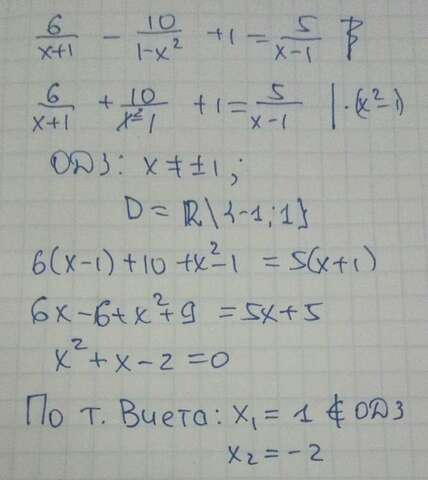 6/(x+1) − 10/(1−x²) + 1 = 5/(x−1)
6/(x+1) + 10/(x²−1) + 1 = 5/(x−1) | ·(x²−1)
ОДЗ: x ≠ ±1;
D = ℝ\{-1;1}
6(x−1)+10+x²−1 = 5(x+1)
6x−6+x²+9 = 5x+5
x²+x−2=0
По т. Виета: x₁ = 1 ∉ ОДЗ
x₂ = −2